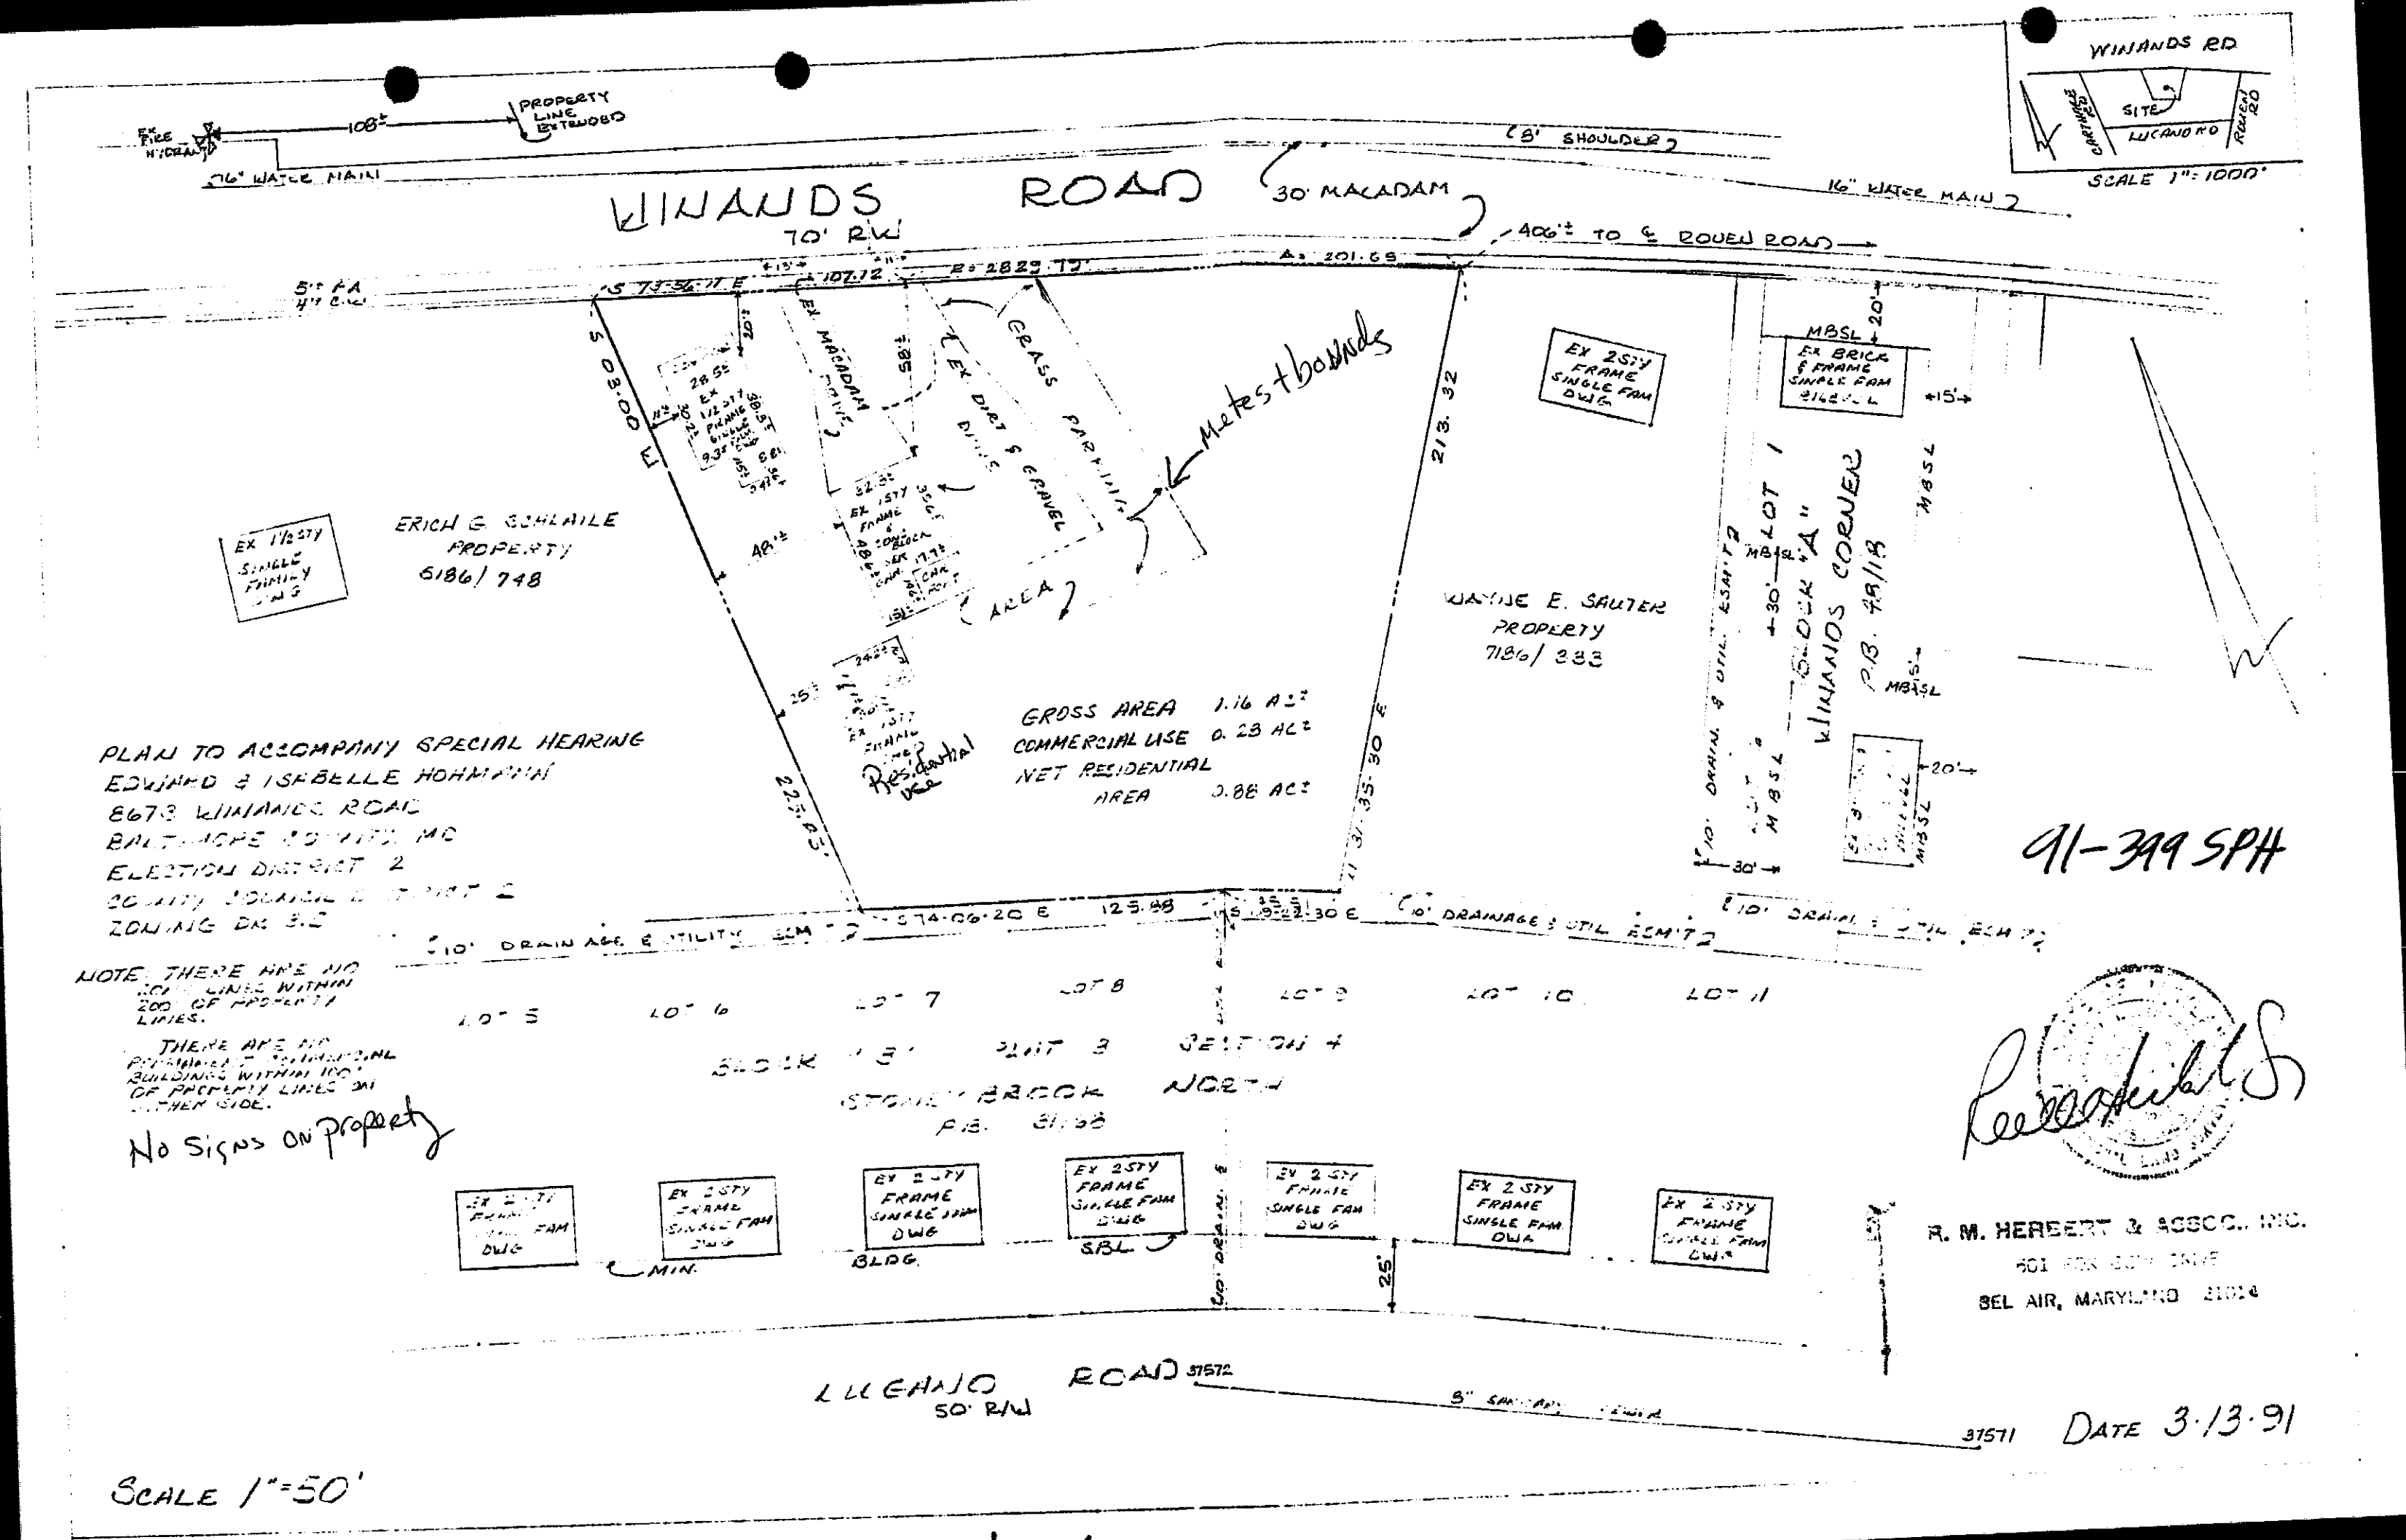 WINANDS RD
SITE
LUGANO RD
ROUEN RD
SCALE 1"=1000'
EX FIRE HYDRANT
108±
PROPERTY
LINE
EXTENDED
16" WATER MAIN
WINANDS ROAD
70' R/W
30' MACADAM
(8' SHOULDER)
16" WATER MAIN
406'± TO ℄ ROUEN ROAD
S 73-56-17 E
107.12
R= 2829.79'
A= 201.69
15'
11'
20'±
EX. MACADAM
DRIVE
EX. DIRT & GRAVEL
DRIVE
GRASS PARKING
(AREA)
Metes + bounds
S 03-00 W
223.83'
213.32
11-31-35-30 E
28.5±
EX
1 1/2 STY
FRAME
SINGLE
FAM
EX 1STY
FRAME
&
CONC
BLOCK
CAR
PORT
48'±
25'±
EX
1STY
FRAME
Residential
use
EX 1½ STY
SINGLE
FAMILY
DWG
ERICH G. SCHLAILE
PROPERTY
6186/748
EX 2STY
FRAME
SINGLE FAM
DWG
WAYNE E. SAUTER
PROPERTY
7186/333
MBSL
20'
EX BRICK
& FRAME
SINGLE FAM
15'
MBSL
LOT 1
MBSL
30'
BLOCK "A"
WINANDS CORNER
P.B. 48/18
15'
MBSL
10' DRAIN. & UTIL. ESM'T
MBSL
20'
MBSL
30'
GROSS AREA 1.16 AC±
COMMERCIAL USE 0.28 AC±
NET RESIDENTIAL
AREA 0.88 AC±
PLAN TO ACCOMPANY SPECIAL HEARING
EDWARD & ISABELLE HOHMANN
8673 WINANDS ROAD
BALTIMORE COUNTY, MD
ELECTION DISTRICT 2
COUNTY COUNCIL DISTRICT 2
ZONING DR 3.5
91-399 SPH
10' DRAINAGE & UTILITY ESM'T
S 74-06-20 E 125.88
10' DRAINAGE & UTIL ESM'T
10' DRAIN. & UTIL ESM'T
NOTE: THERE ARE NO
ZONE LINES WITHIN
200' OF PROPERTY
LINES.
THERE ARE NO
PERMANENT COMMERCIAL
BUILDINGS WITHIN 100'
OF PROPERTY LINES ON
EITHER SIDE.
No Signs on property
LOT 5
LOT 6
LOT 7
LOT 8
LOT 9
LOT 10
LOT 11
BLOCK "B" PLAT 3 SECTION 4
STONEYBROOK NORTH
P.B. 31/68
EX 2 STY
FRAME
FAM
DWG
EX 2 STY
FRAME
SINGLE FAM
DWG
EX 2 STY
FRAME
SINGLE FAM
DWG
EX 2 STY
FRAME
SINGLE FAM
DWG
EX 2 STY
FRAME
SINGLE FAM
DWG
EX 2 STY
FRAME
SINGLE FAM
DWG
EX 2 STY
FRAME
SINGLE FAM
DWG
MIN.
BLDG.
SBL
10' DRAIN. &
25'
R. M. HERBERT & ASSOC., INC.
BEL AIR, MARYLAND 21014
LUGANO ROAD
50' R/W
37572
8" SANITARY SEWER
37571
DATE 3-13-91
SCALE 1"=50'